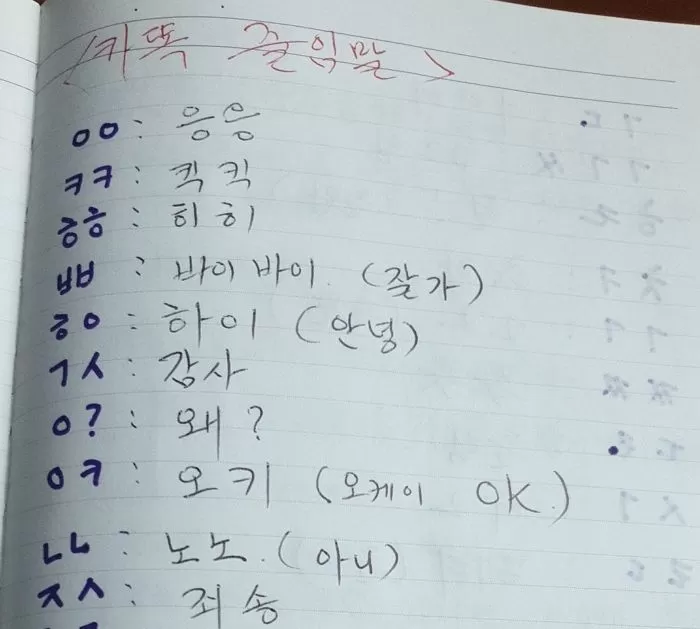 <카똑 줄임말>
ㅇㅇ : 응응
ㅋㅋ : 킥킥
ㅎㅎ : 히히
ㅃㅃ : 바이바이. (잘가)
ㅎㅇ : 하이 (안녕)
ㄱㅅ : 감사
ㅇ? : 왜?
ㅇㅋ : 오키 (오케이 OK.)
ㄴㄴ : 노노. (아니)
ㅈㅅ : 죄송